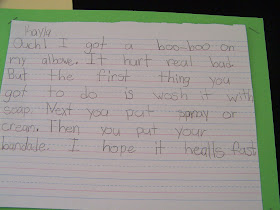 Kayla
Ouch! I got a boo-boo on
my albove. It hurt real bad.
But the first thing you
got to do is wash it with
soap. Next you put spray or
crean. Then you put your
bandade. I hope it healls fast